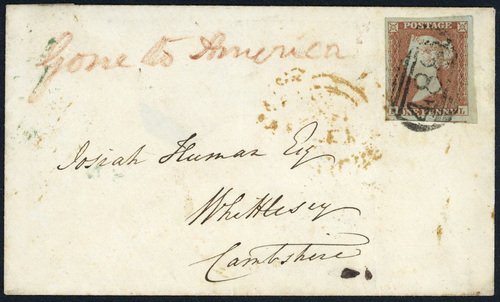 Gone to America
POSTAGE
Josiah Human Esq
Whittlesey
Cambshire